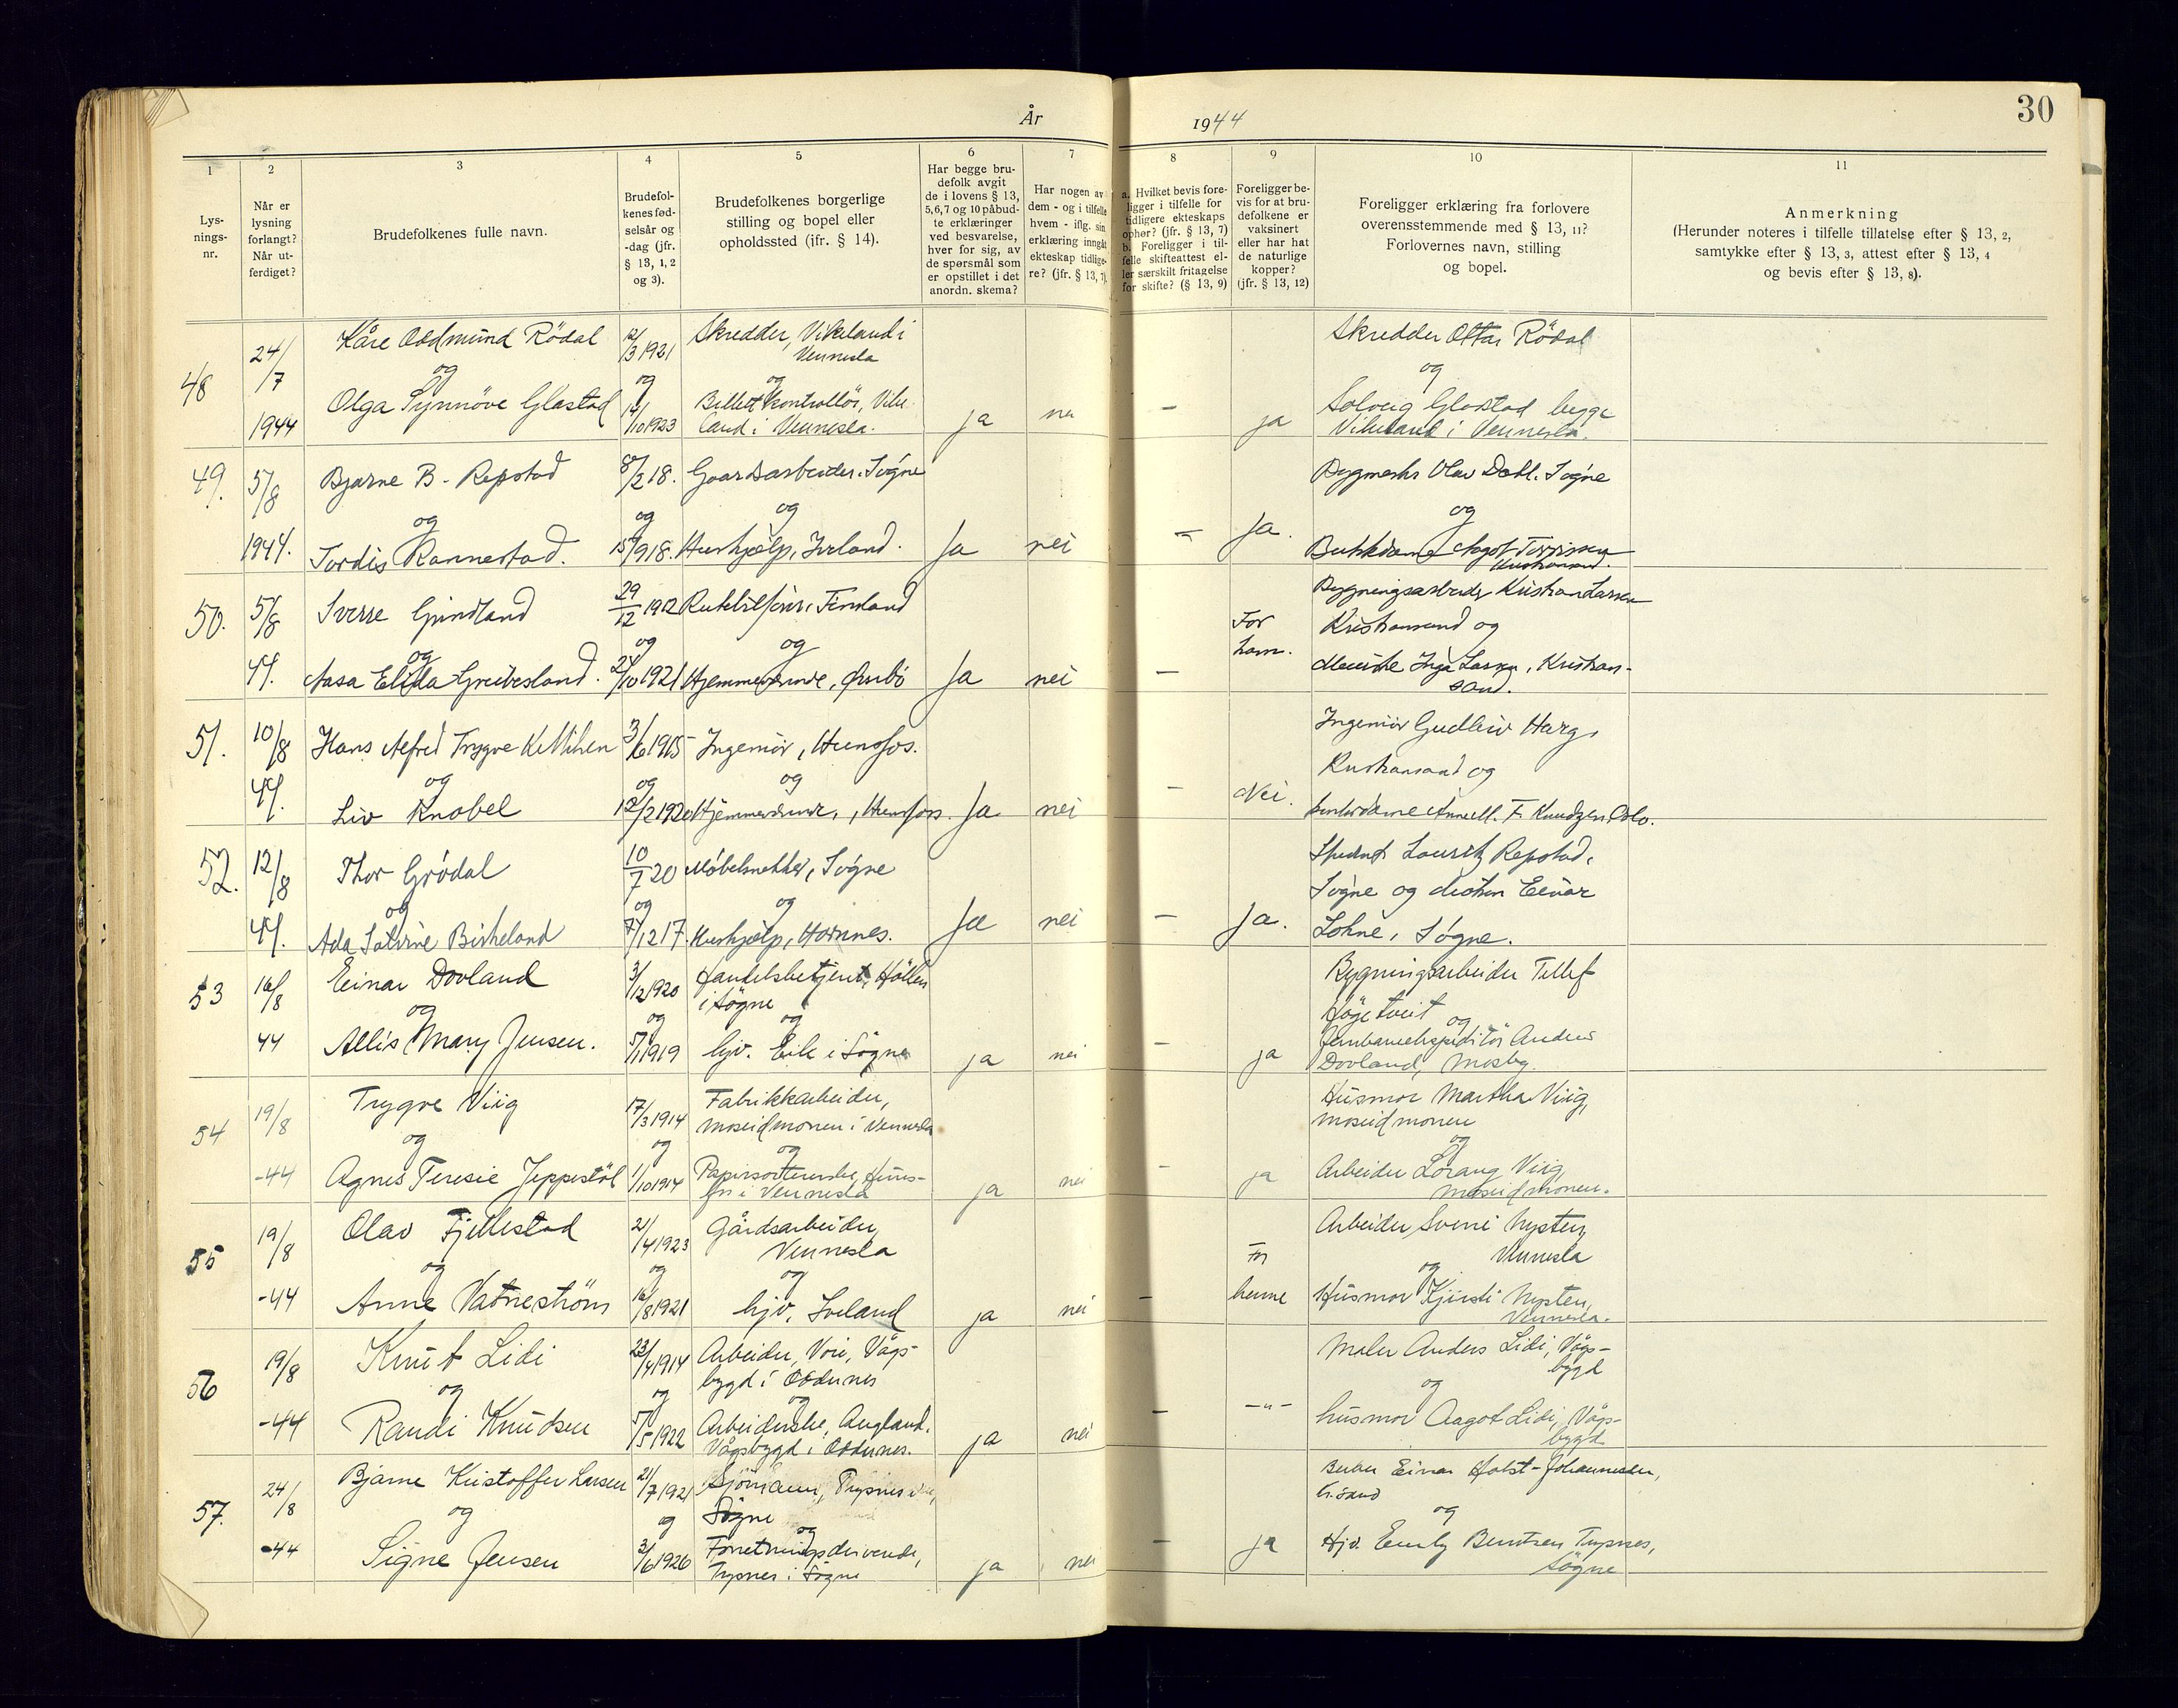 År 1944
30
1
Lys-
nings-
nr.
2
Når er
lysning
forlangt?
Når ut-
ferdiget?
3
Brudefolkenes fulle navn.
4
Brudefol-
kenes fød-
selsår og
-dag (jfr.
§ 13, 1, 2
og 3).
5
Brudefolkenes borgerlige
stilling og bopel eller
opholdssted (jfr. § 14).
6
Har begge bru-
defolk avgit
de i lovens § 13,
5, 6, 7 og 10 påbud-
te erklæringer
ved besvarelse,
hver for sig, av
de spørsmål som
er opstillet i det
anordn. skema?
7
Har nogen av
dem - og i tilfelle
hvem - iflg. sin
erklæring inngått
ekteskap tidlige-
re? (jfr. § 13, 7).
8
a. Hvilket bevis fore-
ligger i tilfelle for
tidligere ekteskaps
ophør? (jfr. § 13, 7)
b. Foreligger i til-
felle skifteattest el-
ler særskilt fritagelse
for skifte? (§ 13, 9)
9
Foreligger be-
vis for at bru-
defolkene er
vaksinert
eller har hat
de naturlige
kopper?
(jfr. § 13, 12)
10
Foreligger erklæring fra forlovere
overensstemmende med § 13, 11?
Forlovernes navn, stilling
og bopel.
11
Anmerkning
(Herunder noteres i tilfelle tillatelse efter § 13, 2,
samtykke efter § 13, 3, attest efter § 13, 4
og bevis efter § 13, 8).
48
24/7
1944
Kåre Oddmund Rödal
og
Olga Synnöve Glastad
12/3 1921
og
14/10 1923
Skredder, Vikeland i
Vennesla
og
Billettkontrollör, Vike-
land i Vennesla.
ja
nei
-
ja
Skredder Ottar Rödal
og
Solveig Glastad begge
Vikeland i Vennesla.
49.
5/8
1944.
Bjarne B. Repstad
og
Tordis Rannestad.
8/2 18.
og
15/9 18.
Gaardsarbeider. Søgne
og
Hushjælp, Iveland.
Ja
nei
-
Ja.
Bygmester Olav Dahl. Søgne
og
Butikkdame Aagot Terjesen
Kristiansand.
50.
5/8
44.
Sverre Grindland
og
Aasa Elida Greibesland.
29/12 1912
og
27/10 1921
Rutebilsjåfør, Finsland
og
Hjemmeværende, Øvrebø
Ja
nei
-
For
ham.
Bygningsarbeider Kristian Larsen
Kristiansand og
Inga Larsen, Kristian-
sand.
51.
10/8
44.
Hans Alfred Trygve Kittilsen
og
Liv Knobel
3/6 1915
og
12/2 1920
Ingeniør, Hunsfos.
og
Hjemmeværende, Hunsfos.
Ja
nei
-
Nei.
Ingeniør Gudleiv Harg,
Kristiansand og
F. Knudzen Oslo.
52.
12/8
44.
Thor Grødal
og
Ada Salvine Birkeland
10/7 20
og
7/12 17.
Møbelsnekker, Søgne
og
Hushjælp, Hornnes.
Ja
nei
-
Ja.
Lauritz Repstad,
Søgne og Einar
Lohne, Søgne.
53
16/8
44
Einar Dovland
og
Allis Mary Jensen.
3/12 1920
og
5/1 1919
Handelsbetjent, Höllen
i Sögne
og
hjv. Eik i Sögne
ja
nei
-
ja
Bygningsarbeider Tellef
Högetveit og
Jernbaneekspeditör Anders
Dovland, Mosby.
54
19/8
-44
Trygve Viig
og
Agnes Teresie Jeppestöl
17/3 1914
og
1/10 1914
Fabrikkarbeider,
Moseidmonen i Vennesla
og
Papirsorterske, Huns-
fos i Vennesla
ja
nei
-
ja
Husmor Martha Viig,
Moseidmonen
og
Arbeider Lorang Viig
Moseidmonen.
55
19/8
-44
Olav Fjellestad
og
Anne Vatneström
21/4 1923
og
16/8 1921
Gårdsarbeider,
Vennesla
og
hjv. Iveland
ja
nei
-
For
henne
Arbeider Sveni Nysten,
Vennesla
og
Husmor Kjirsti Nysten,
Vennesla.
56
19/8
-44
Knut Lidi
og
Randi Knudsen
23/4 1914
og
5/5 1922
Arbeider, Voie, Vågs-
bygd i Oddernes
og
Arbeiderske, Augland.
Vågsbygd i Oddernes.
ja
nei
-
-"-
Maler Anders Lidi, Vågs-
bygd
og
husmor Aagot Lidi, Vågs-
bygd
57.
24/8
-44
Bjarne Kristoffer Larsen
og
Signe Jensen
21/7 1921
og
3/6 1926
Sjömann, Trysnes i
Sögne
og
Forretningsdrivende,
Trysnes i Sögne
ja
nei
-
ja
Einar Holst-Johannesen,
Kr.sand
og
Hjv. Emily Berntsen Trysnes,
Sögne